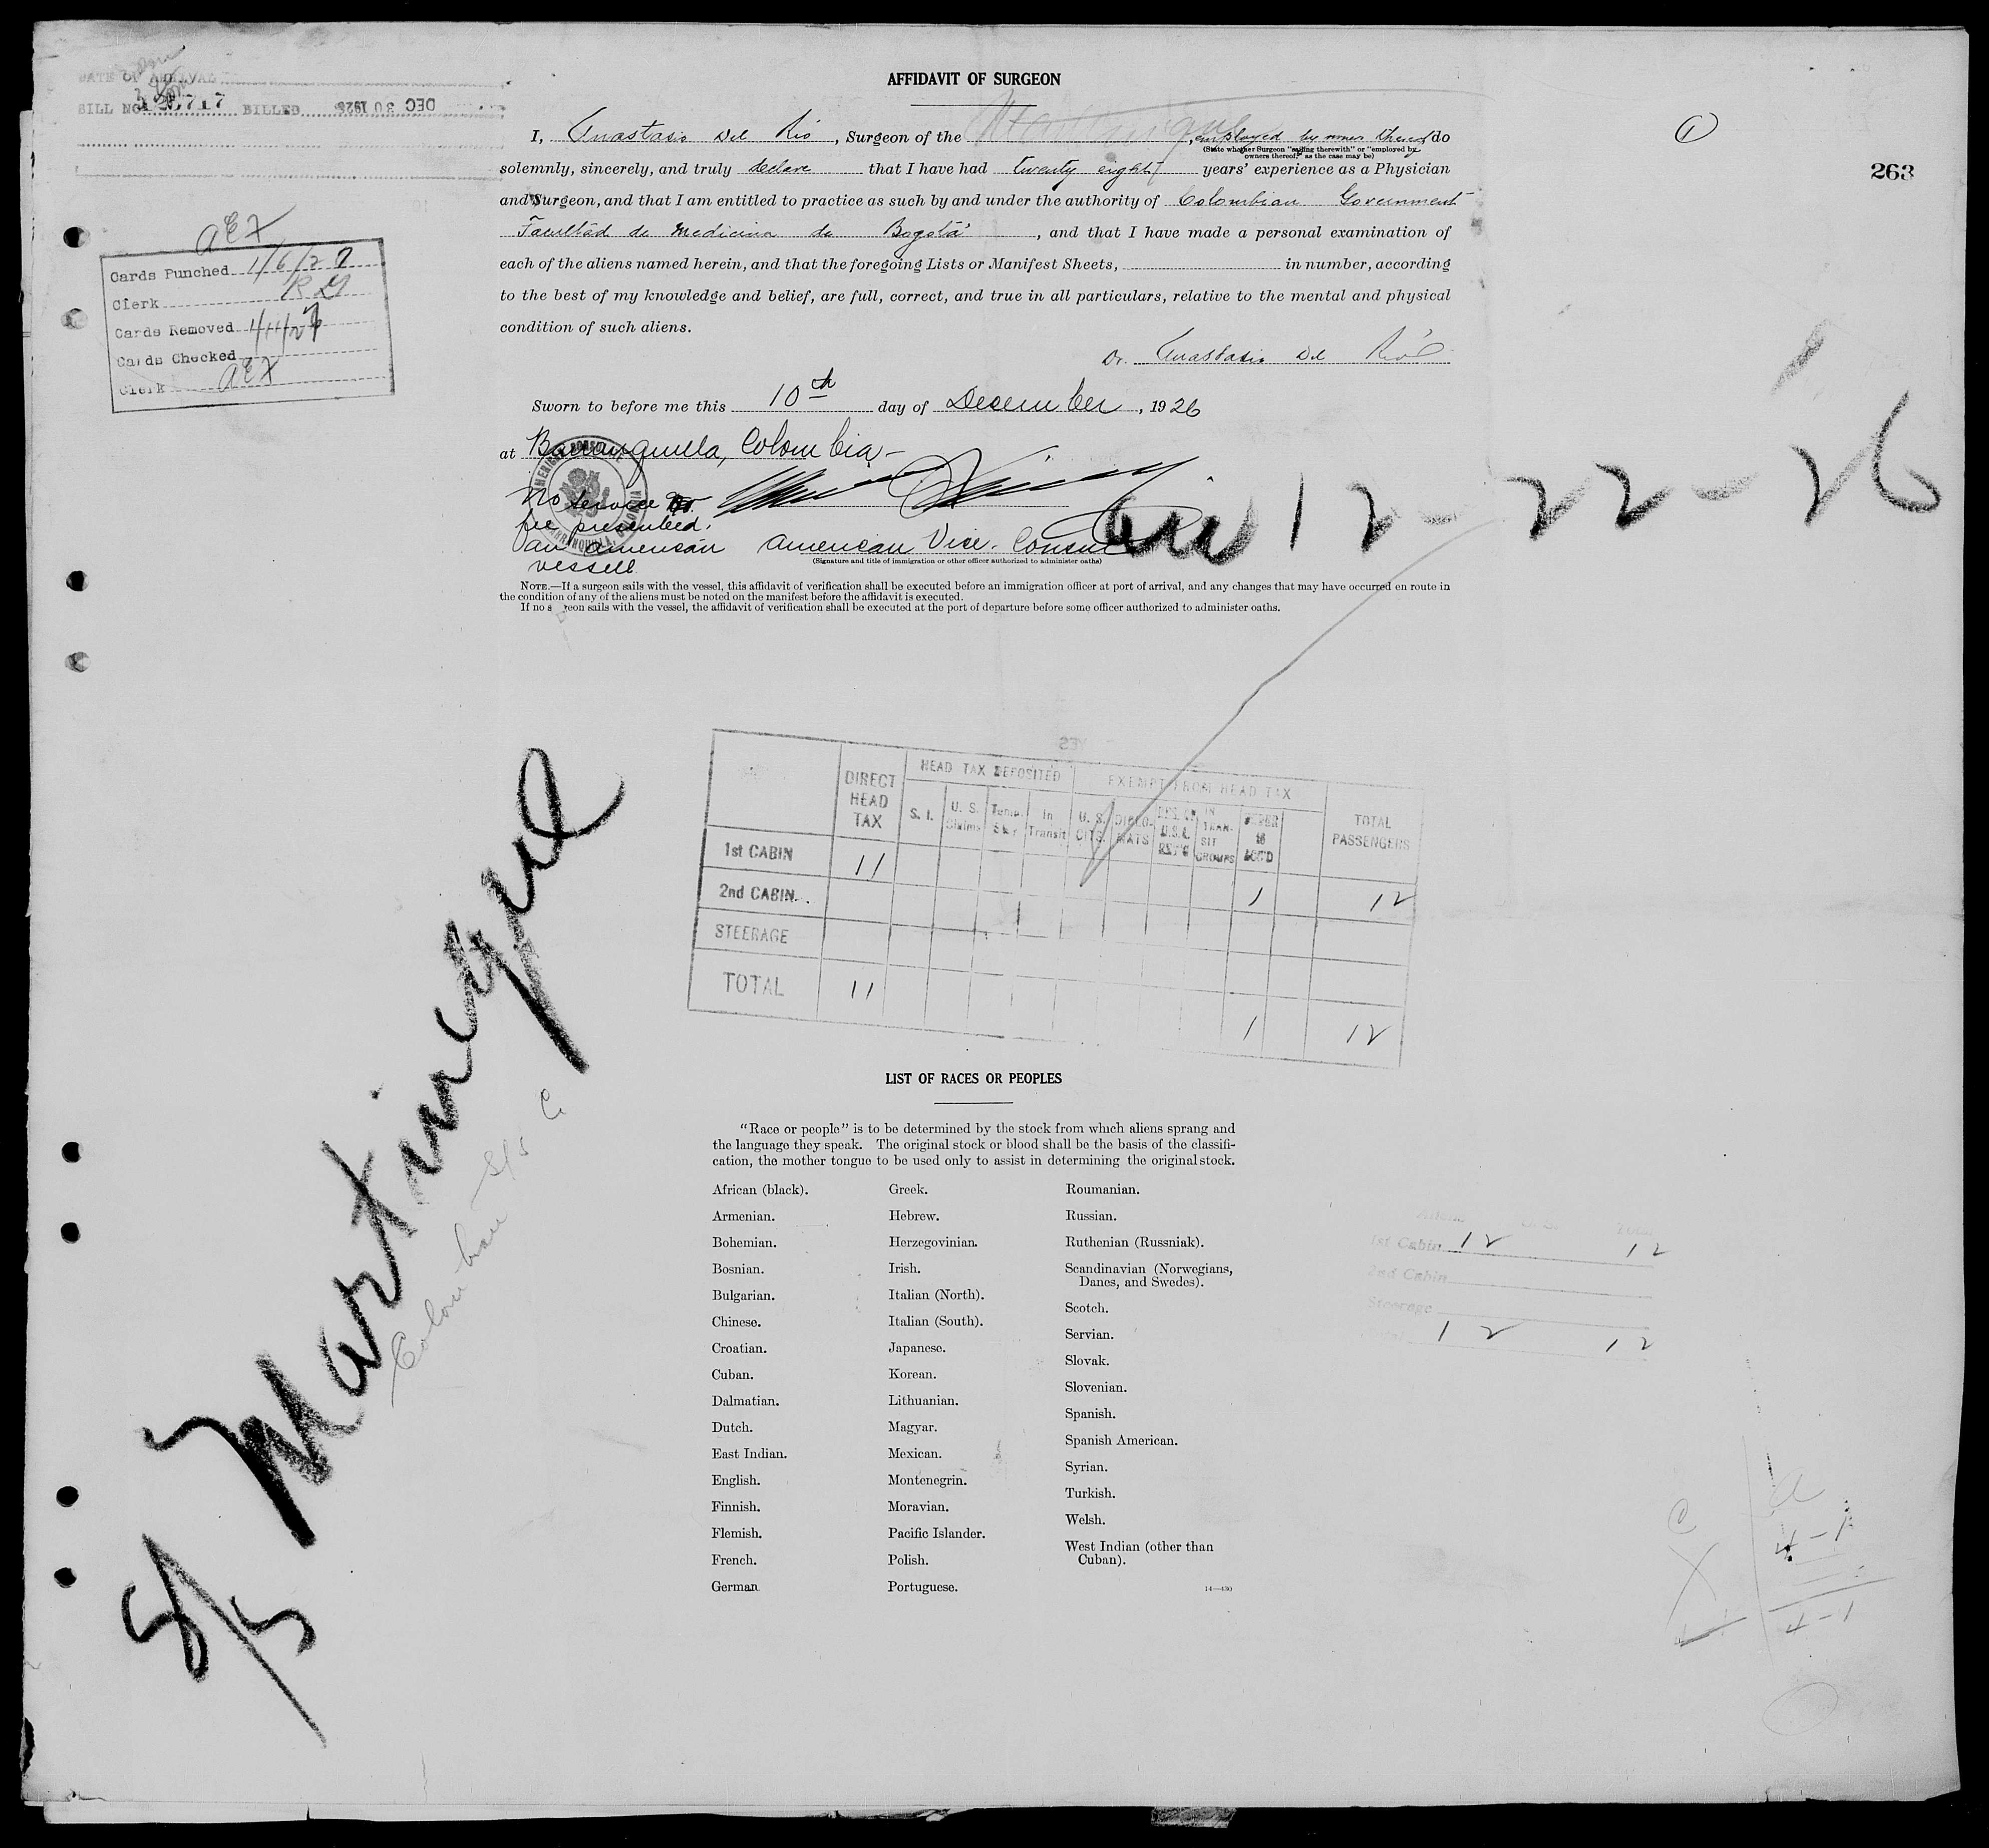 DATE OF ARRIVAL
BILL NO. BILLED DEC 30 1926
AFFIDAVIT OF SURGEON
I, Anastasio Del Rio, Surgeon of the Martinique, employed by owners thereof do
(State whether Surgeon "sailing therewith" or "employed by owners thereof," as the case may be)
solemnly, sincerely, and truly declare that I have had twenty eight years' experience as a Physician
and Surgeon, and that I am entitled to practice as such by and under the authority of Colombian Government
Facultad de Medicina de Bogotá, and that I have made a personal examination of
each of the aliens named herein, and that the foregoing Lists or Manifest Sheets, in number, according
to the best of my knowledge and belief, are full, correct, and true in all particulars, relative to the mental and physical
condition of such aliens.
Dr. Anastasio Del Rio
Sworn to before me this 10th day of December, 1926
at Barranquilla, Colombia
AMERICAN CONSULATE
BARRANQUILLA, COLOMBIA
No service
fee presented.
an american
vessell
American Vice. Consul
(Signature and title of immigration or other officer authorized to administer oaths)
12-22-26
1
263
AEX
Cards Punched 1/6/27
Clerk
Cards Removed
Cards Checked
Clerk AEX
NOTE.—If a surgeon sails with the vessel, this affidavit of verification shall be executed before an immigration officer at port of arrival, and any changes that may have occurred en route in
the condition of any of the aliens must be noted on the manifest before the affidavit is executed.
If no surgeon sails with the vessel, the affidavit of verification shall be executed at the port of departure before some officer authorized to administer oaths.
YES
DIRECT HEAD TAX
HEAD TAX DEPOSITED
EXEMPT FROM HEAD TAX
TOTAL PASSENGERS
S. I.
U. S. Claims
Temp. Stay
In Transit
U. S. CITS.
DIPLO-MATS
IN TRAN-SIT GROUPS
UNDER 16 ACC'D
1st CABIN 11
2nd CABIN 1 12
STEERAGE
TOTAL 11
1 12
S/S Martinique
Colombian S/S C
LIST OF RACES OR PEOPLES
"Race or people" is to be determined by the stock from which aliens sprang and
the language they speak. The original stock or blood shall be the basis of the classifi-
cation, the mother tongue to be used only to assist in determining the original stock.
African (black).
Armenian.
Bohemian.
Bosnian.
Bulgarian.
Chinese.
Croatian.
Cuban.
Dalmatian.
Dutch.
East Indian.
English.
Finnish.
Flemish.
French.
German
Greek.
Hebrew.
Herzegovinian.
Irish.
Italian (North).
Italian (South).
Japanese.
Korean.
Lithuanian.
Magyar.
Mexican.
Montenegrin.
Moravian.
Pacific Islander.
Polish.
Portuguese.
Roumanian.
Russian.
Ruthenian (Russniak).
Scandinavian (Norwegians,
Danes, and Swedes).
Scotch.
Servian.
Slovak.
Slovenian.
Spanish.
Spanish American.
Syrian.
Turkish.
Welsh.
West Indian (other than
Cuban).
14—430
Total
1st Cabin 12 12
2nd Cabin
Steerage
12 12
C
a
4-1
4-1